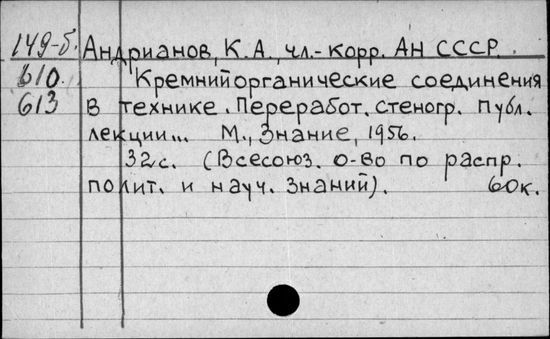 149-б. Андрианов, К.А., чл.-корр. АН СССР.
610. Кремнийорганические соединения
613 в технике. Переработ. стеногр. публ.
лекции... М., Знание, 1956.
32с. (Всесоюз. о-во по распр.
полит. и науч. знаний). 60к.